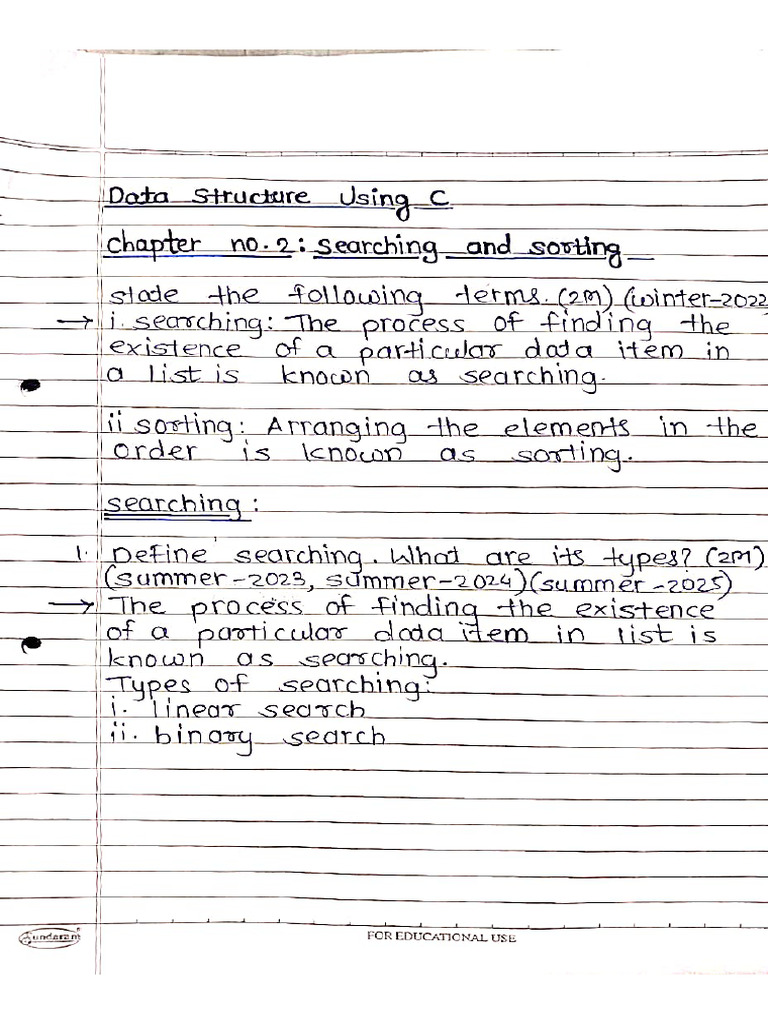 Data Structure Using C
Chapter no.2: searching and sorting
state the following terms. (2M) (winter-2022
→ i. searching: The process of finding the
existence of a particular data item in
a list is known as searching.
ii sorting: Arranging the elements in the
order is known as sorting.
searching:
1. Define searching. What are its types? (2M)
(summer-2023, summer-2024)(summer-2025)
→ The process of finding the existence
of a particular data item in list is
known as searching.
Types of searching:
i. linear search
ii. binary search
Sundaram
FOR EDUCATIONAL USE